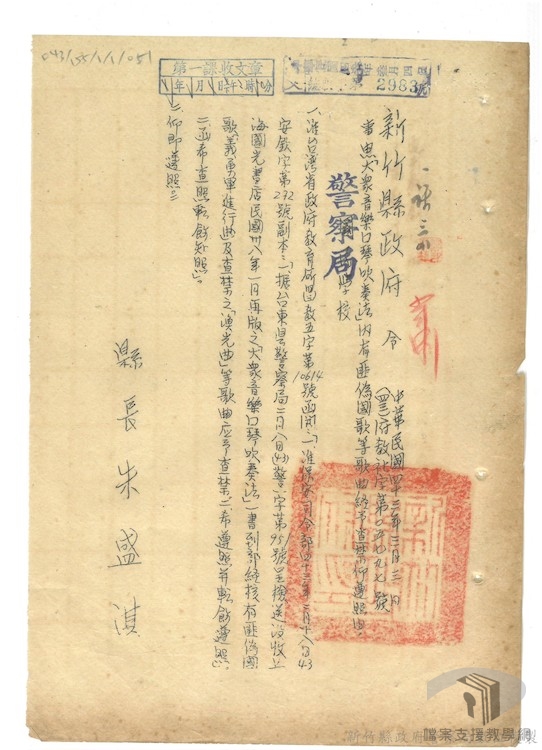 043/155/1/1/051
第一課收文章
年 月 日 時 分
2983
新竹縣政府 令
中華民國四十三年三月三日
府教社字第 號
事由:「大眾音樂口琴吹奏法」內有匪偽國歌等歌曲經予查禁仰遵照由
警察局
學校
一、准台灣省政府教育廳 教五字第10614號函開:「一、准保安司令部四十三年二月十八日43
安 字第232號副本:「一、據台東縣警察局二月八日(43)警一字第95號呈擾送沒收上
海國光書店民國卅八年一月再版之「大眾音樂口琴吹奏法」一書到部經核有匪偽國
歌義勇軍進行曲及查禁之「漁光曲」等歌曲应予查禁二、希遵照并転飭遵照」
二、函希查照転飭知照」
二、仰即遵照:
縣長朱盛淇
新竹縣政府
檔案支援教學網
製